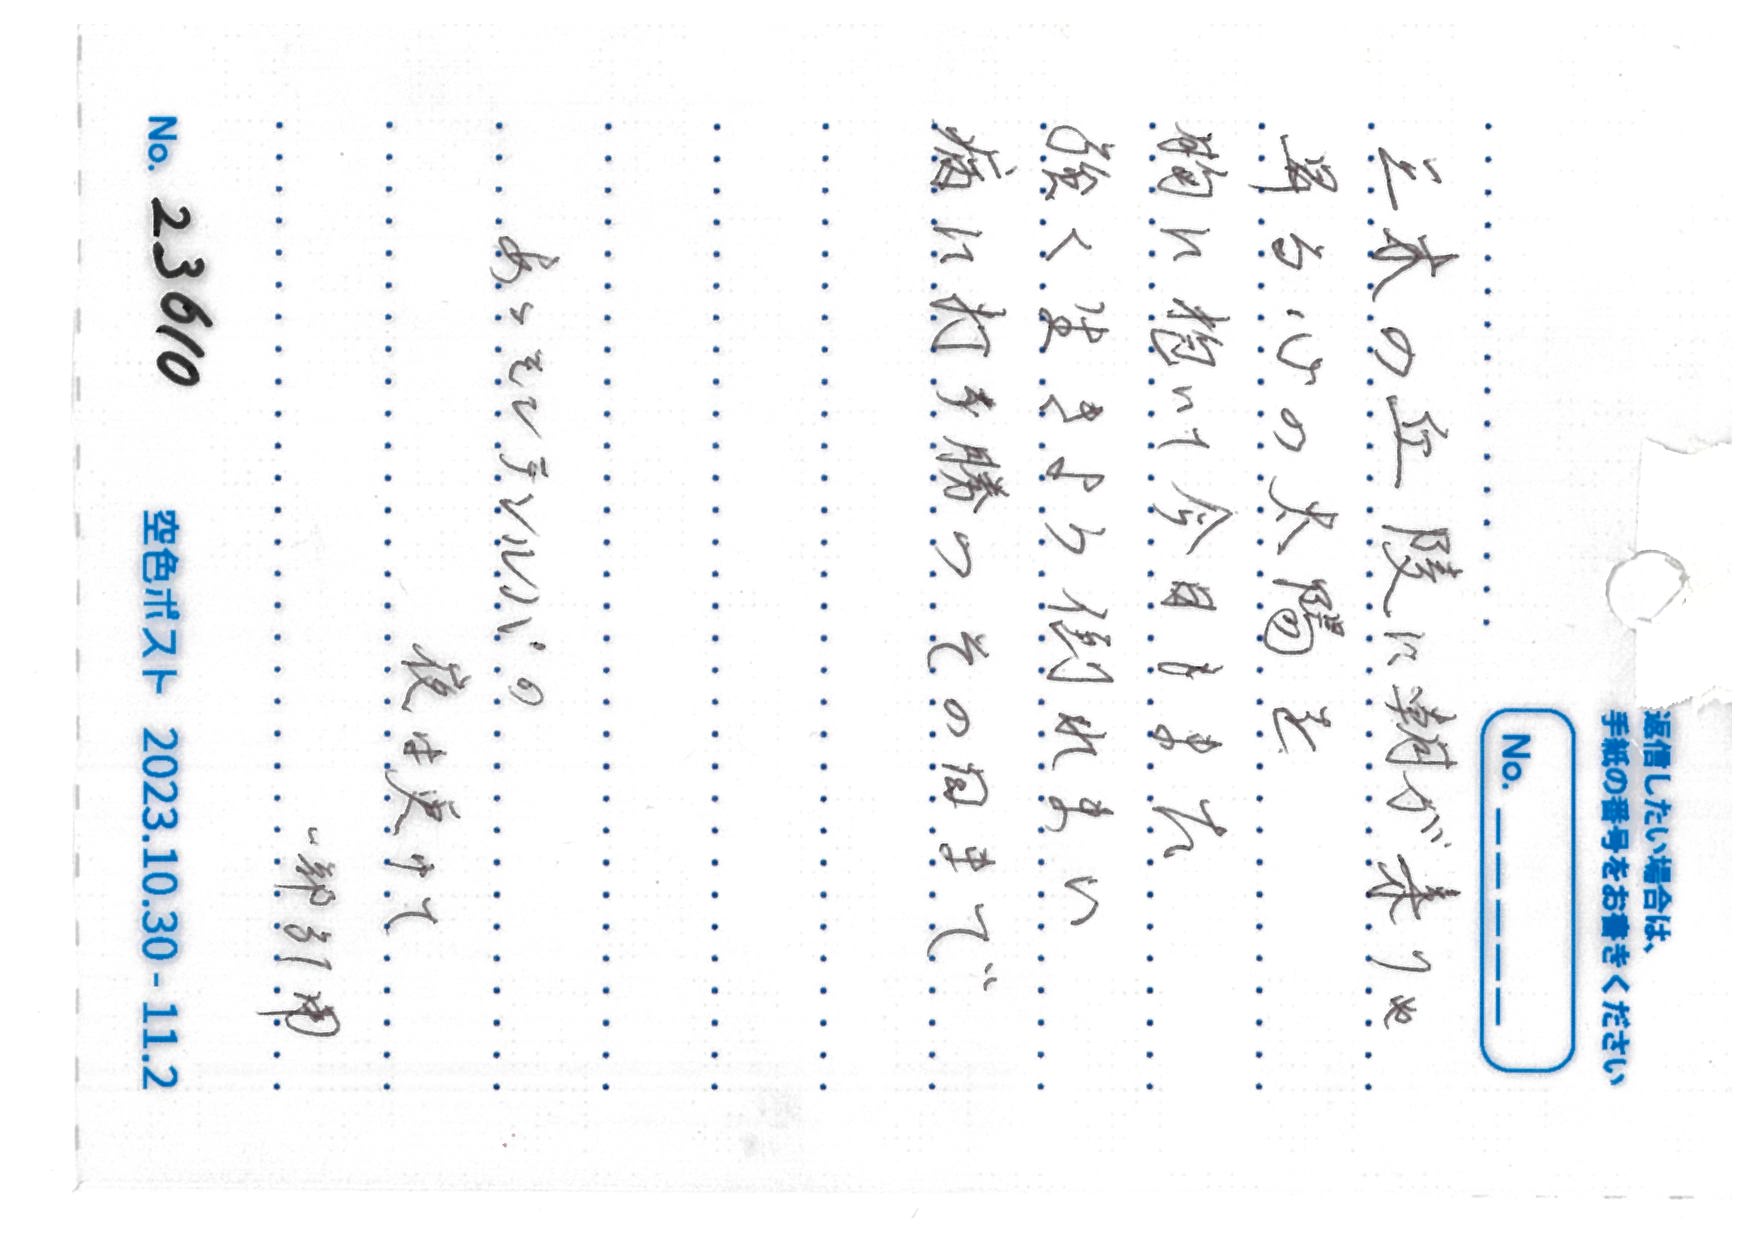 返信したい場合は、
手紙の番号をお書きください
No. _ _ _ _ _
三木の丘陵に朝が来りゃ
昇る心の太陽を
胸に抱いて今日もまた
強く生きよう倒れまい
病に打き勝つその日まで
あゝモンテンルパの
夜は更けて
一部引用
No. 23610
空色ポスト 2023.10.30 - 11.2